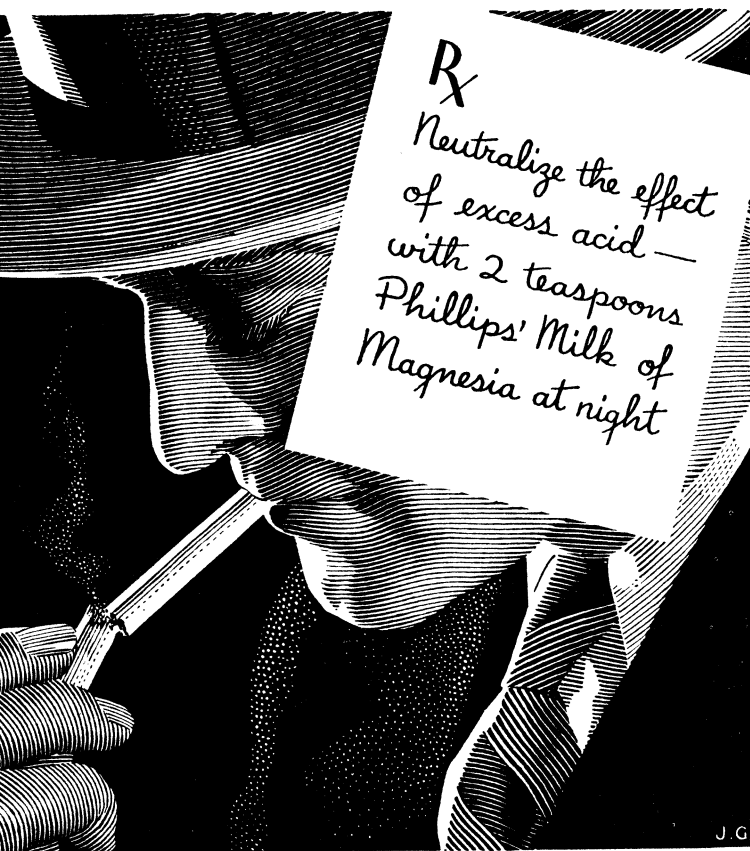 Rx
Neutralize the effect
of excess acid —
with 2 teaspoons
Phillips' Milk of
Magnesia at night
J.G